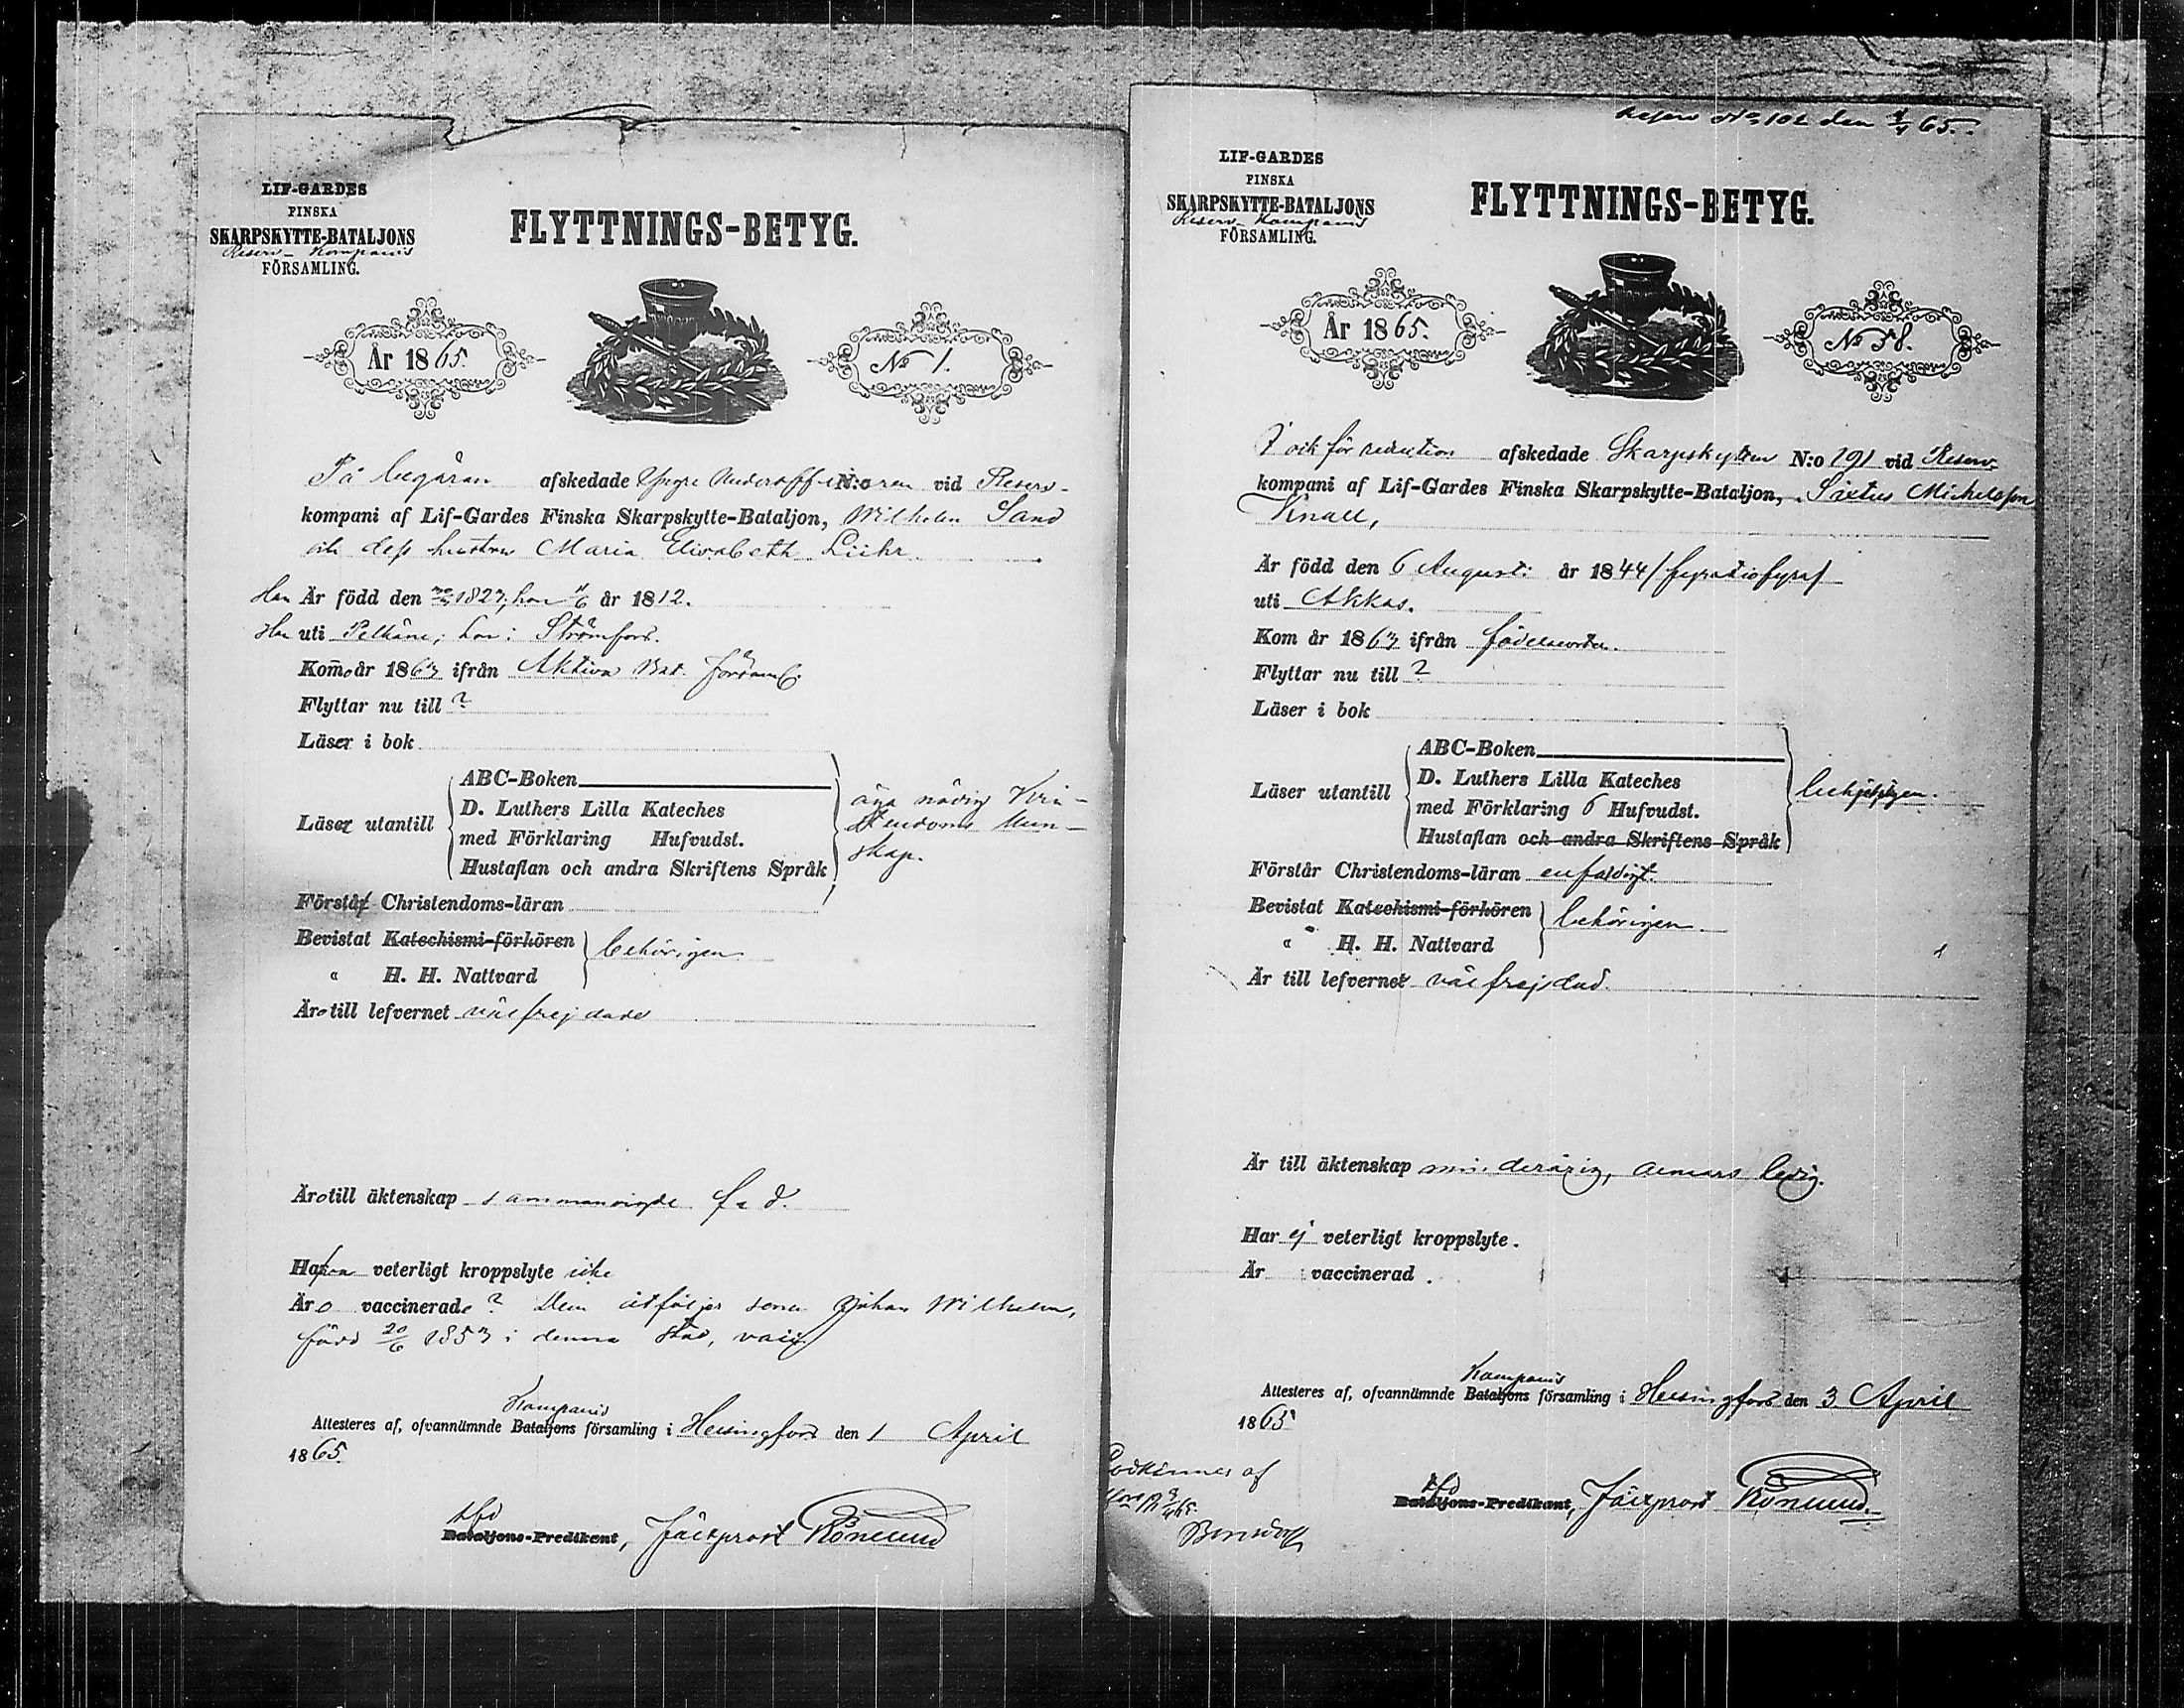 LIF-GARDES
FINSKA
SKARPSKYTTE-BATALJONS
Reserv-Kompanis
FÖRSAMLING.
FLYTTNINGS-BETYG.
År 1865.
No 1.
På begäran afskedade Yngre Underofficeraren vid Reserv-
kompani af Lif-Gardes Finska Skarpskytte-Bataljon, Wilhelm Sand
och dess hustru Maria Elisabeth Liihr
Han Är född den 1823; hon 11/6 år 1812.
Han uti Pelkäne; hon i Strömfors.
Komo år 1863 ifrån Aktiva Bat. Församl.
Flyttar nu till ?
Läser i bok
Läser utantill
ABC-Boken
D. Luthers Lilla Kateches
med Förklaring Hufvudst.
Hustaflan och andra Skriftens Språk
äga nödig Kri-
stendoms kun-
skap.
Förstår Christendoms-läran
Bevistat Katechismi-förhören
" H. H. Nattvard
behörigen
Äro till lefvernet välfrejdade
Äro till äktenskap sammanvigde
Hafva veterligt kroppslyte icke
Äro vaccinerade ? Dem åtföljer sonen Johan Wilhelm,
född 20/6 1853 i denna stad,
Kompanis
Attesteres af, ofvannämnde Bataljons församling i Helsingfors den 1 April
1865.
Bataljons-Predikant, Fältprost Rönlund
Reserv No 102 den 65.
LIF-GARDES
FINSKA
SKARPSKYTTE-BATALJONS
Reserv-Kompanis
FÖRSAMLING.
FLYTTNINGS-BETYG.
År 1865.
No 58.
I och för reduction afskedade Skarpskytten N:o 191 vid Reserv-
kompani af Lif-Gardes Finska Skarpskytte-Bataljon, Sixtus Michelsson
Knall,
Är född den 6 Augusti år 1844 /fyratiofyra/
uti Akkas.
Kom år 1863 ifrån födelseorten.
Flyttar nu till ?
Läser i bok
Läser utantill
ABC-Boken
D. Luthers Lilla Kateches
med Förklaring 6 Hufvudst.
Hustaflan och andra Skriftens Språk
behjelpligen.
Förstår Christendoms-läran enfaldigt.
Bevistat Katechismi-förhören
" H. H. Nattvard
behörigen.
Är till lefvernet välfrejdad.
Är till äktenskap minderårig, annars ledig.
Har ej veterligt kroppslyte.
Är vaccinerad.
Kompanis
Attesteres af, ofvannämnde Bataljons församling i Helsingfors den 3 April
1865
Godkännes af
Bataljons-Predikant, Fältprost Rönlund.